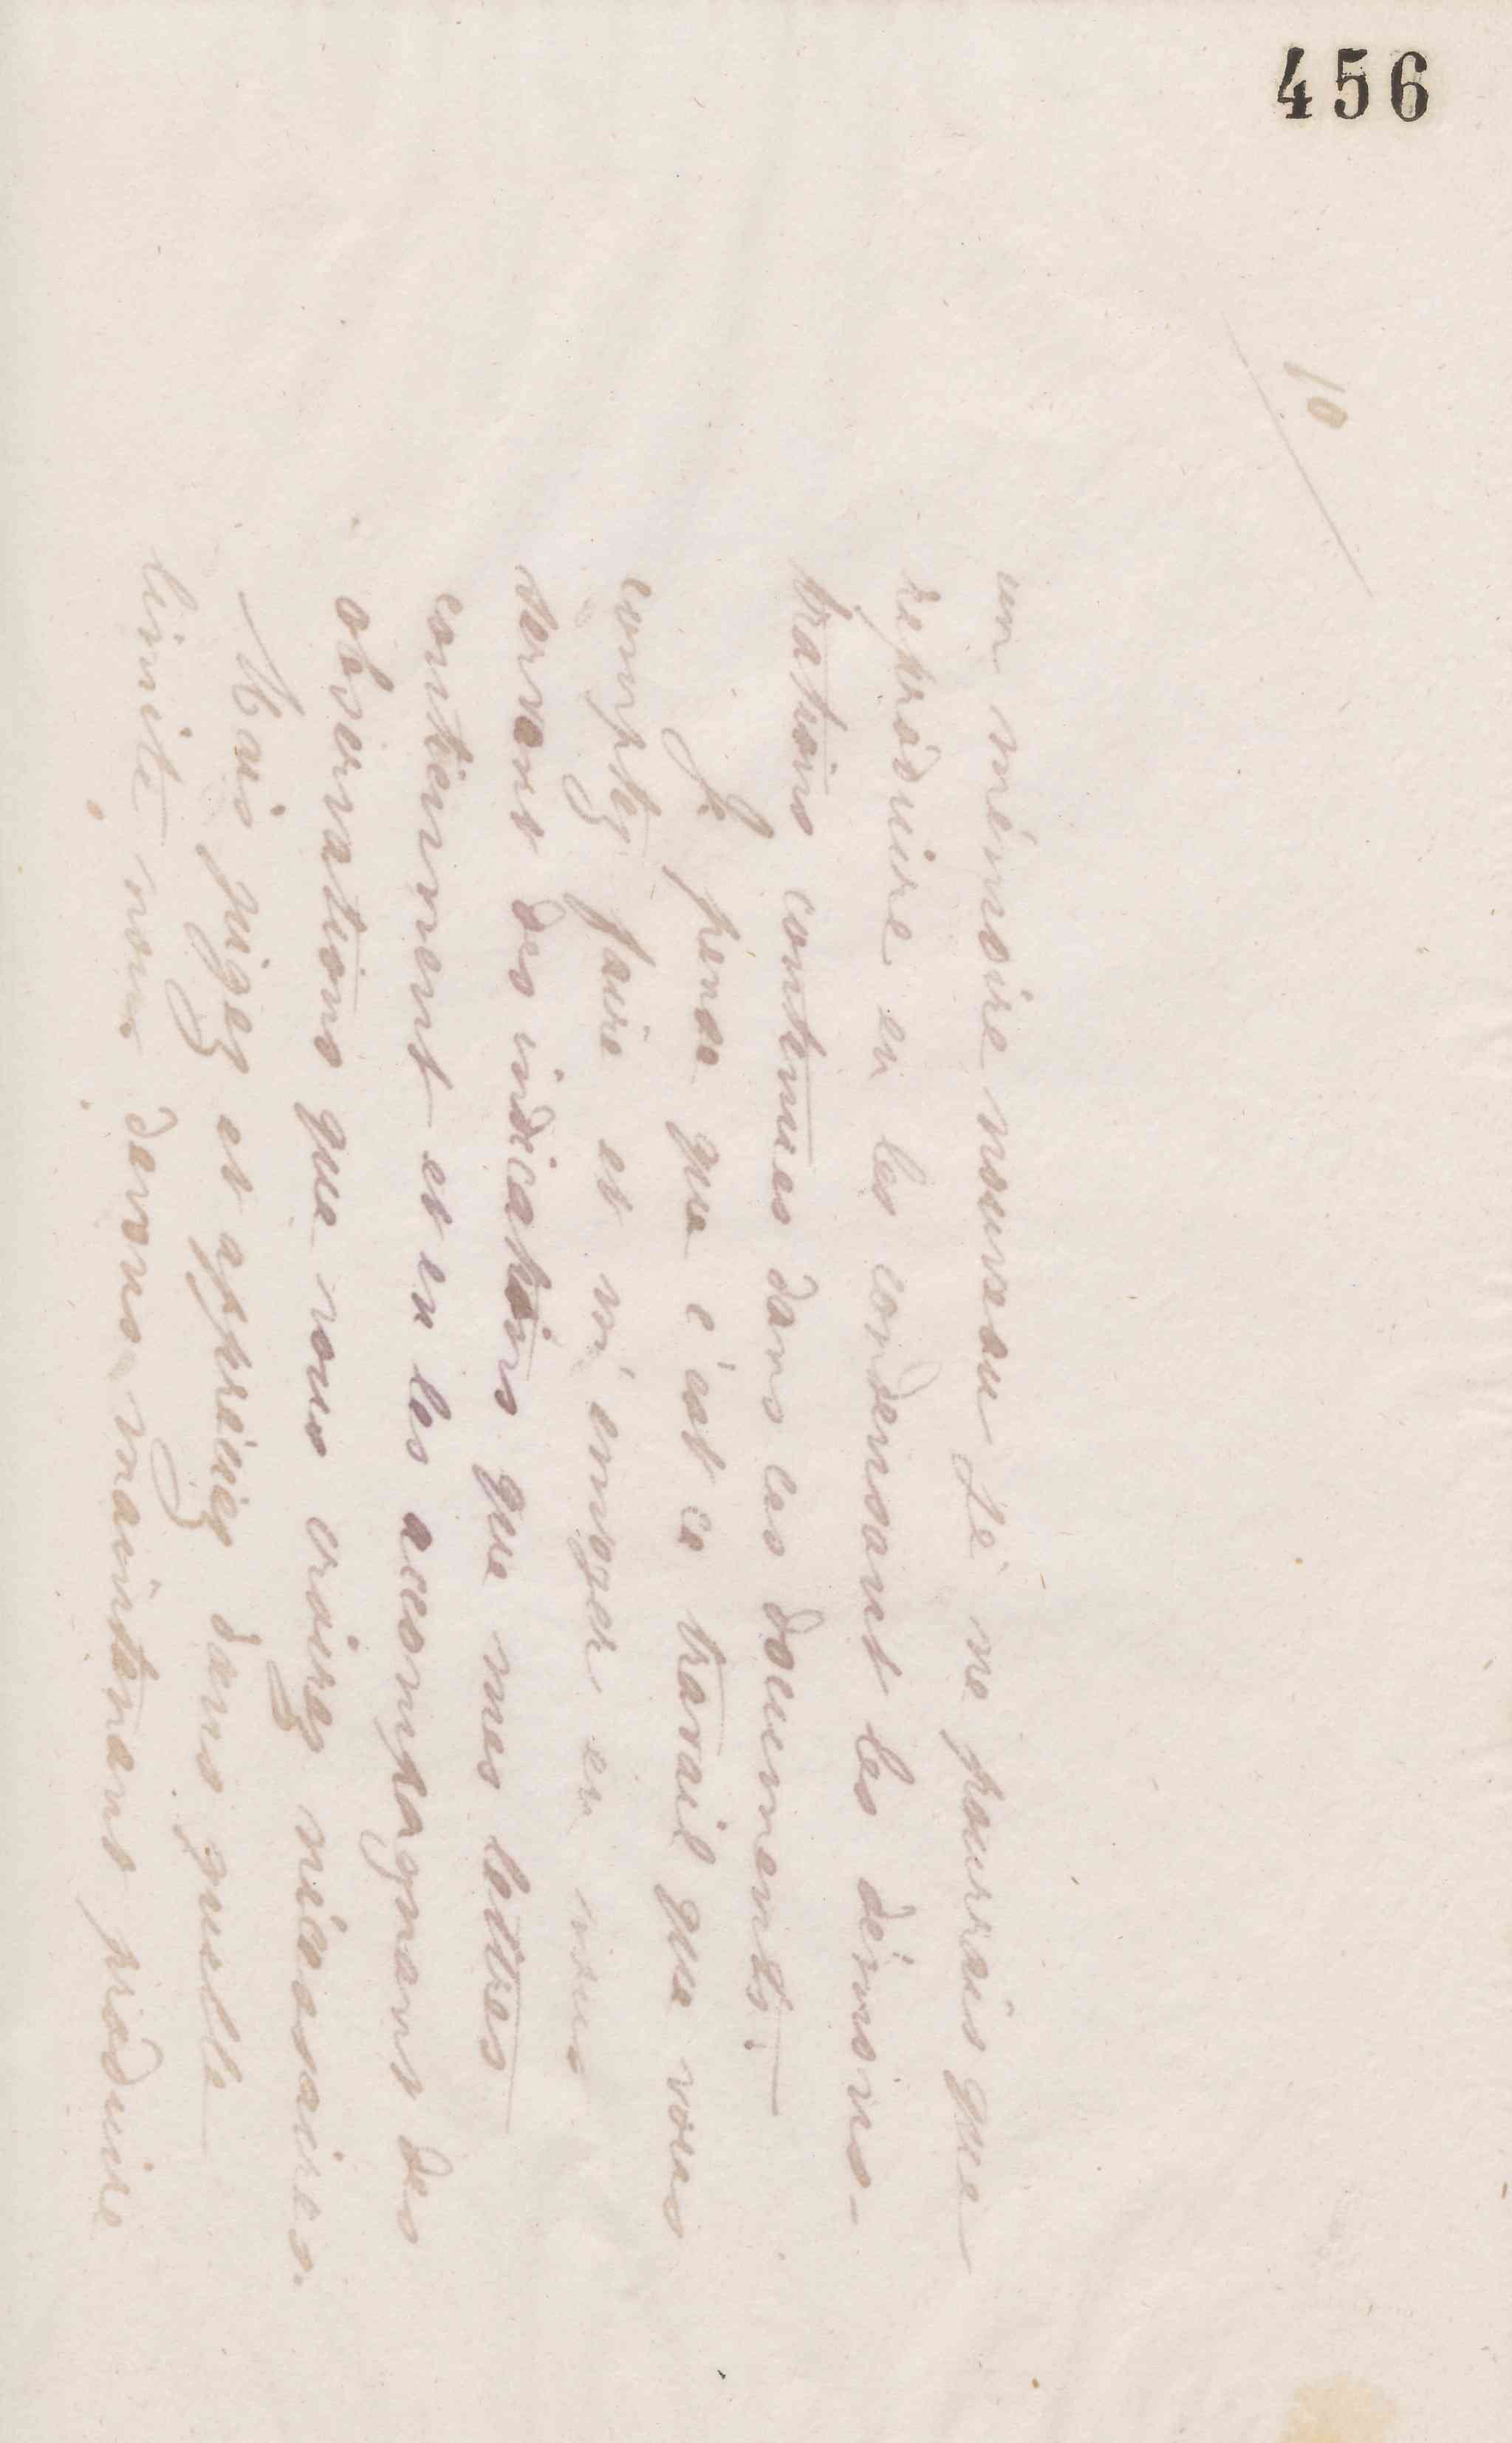 456
10
un mémoire nouveau je ne pourrais que
reproduire en les condensant les démons-
trations contenues dans ces documents.
Je pense que c'est ce travail que vous
comptez faire et m'envoyer en vous
servant des indications que mes lettres
contiennent et en les accompagnant des
observations que vous croirez nécessaires.
Mais jugez et appréciez dans quelle
limite nous devons maintenant produire